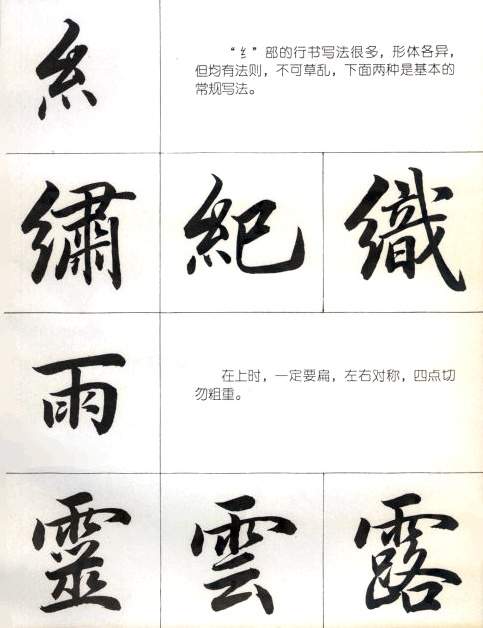 糹
“纟”部的行书写法很多，形体各异，
但均有法则，不可草乱，下面两种是基本的
常规写法。
繡 紀 織
雨
在上时，一定要扁，左右对称，四点切
勿粗重。
靈 雲 露